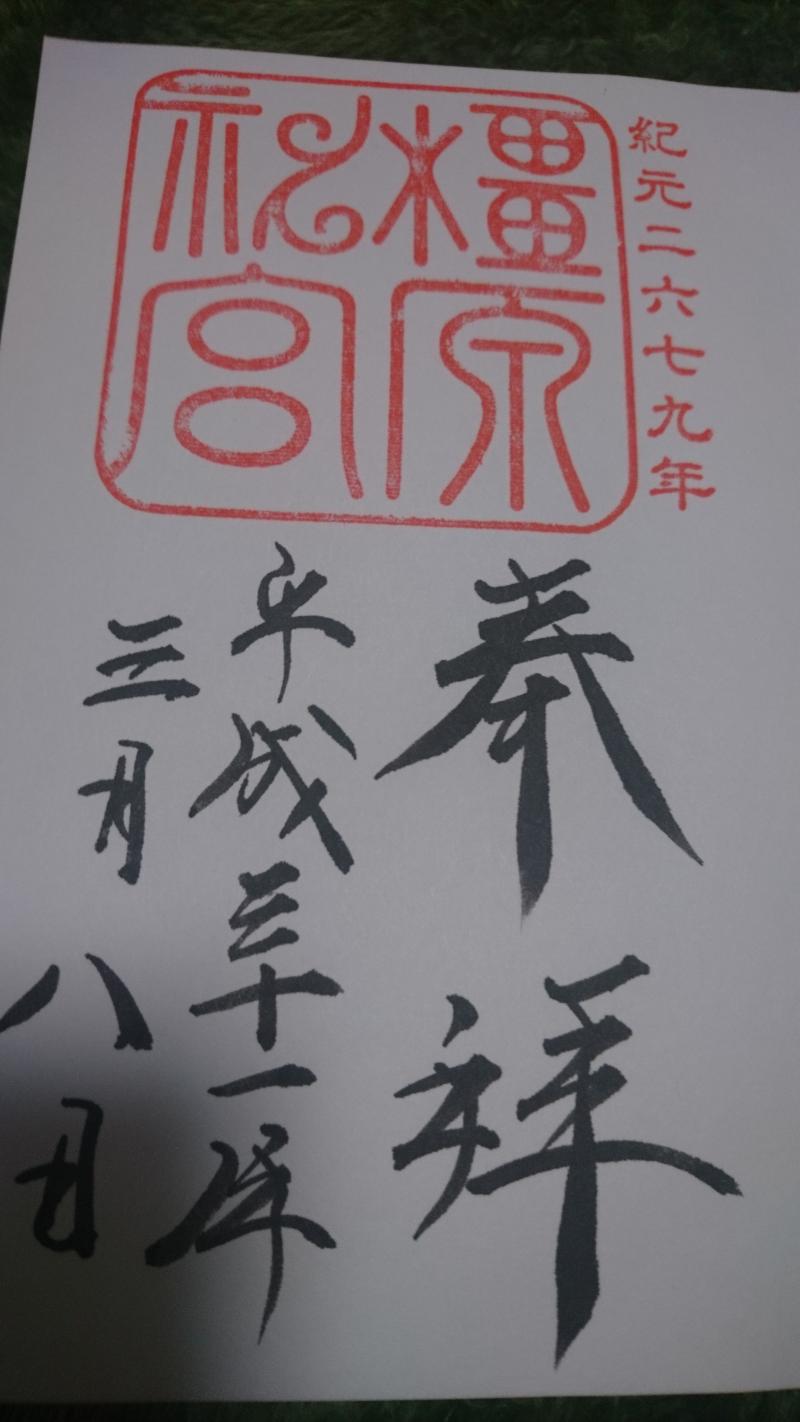 紀元二六七九年
橿原
神宮
奉拝
平成三十一年
三月八日